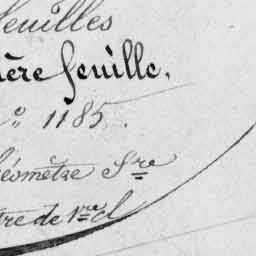 feuilles
ère feuille.
o 1185.
Géomètre Sre
tre de 1re cl